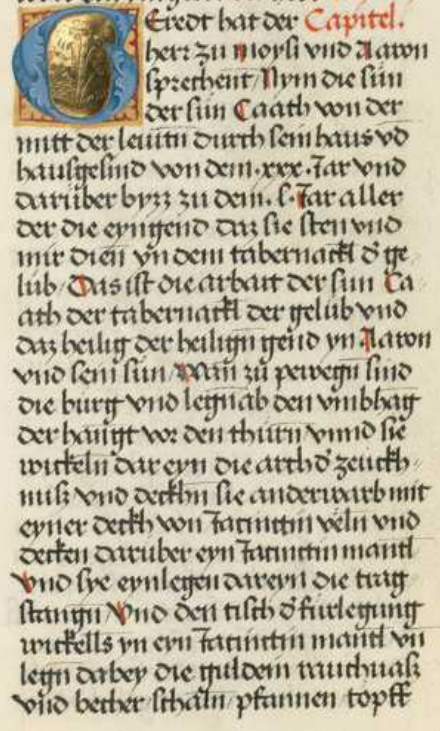 Eredt hat der Capitel.
herr zu moysi vnd Aaron
sprechent Nym die sün
der sün Caath von der
mitt der leuitn durch sein haus vō
hausgesind von dem .xxx. Jar vnd
darüber byzz zu dem .l. Jar aller
der die eyngend daz sie sten vnd
mir dien yn dem tabernackl d' ge
lüb Das ist die arbait der sün Ca
ath der tabernackl der gelüb vnd
daz heilig der heilign gend yn Aaron
vnd sein sün Wan zu pewegn sind
die burg vnd legn ab den vmbhag
der hangt vor den thürn vnnd sie
wickeln dar eyn die arch d' zeuckh
nuß vnd deckhn sie anderwarb mit
eyner deckh von Jacinctin veln vnd
decken darüber eyn Jacinctin mantl
Vnd sye eynlegen dareyn die trag
stangn Vnd den tisch d' fürlegung
wickells yn eyn Jacinctin mantl vn
legn dabey die guldem rauchuaß
vnd becher schaln pfannen topff